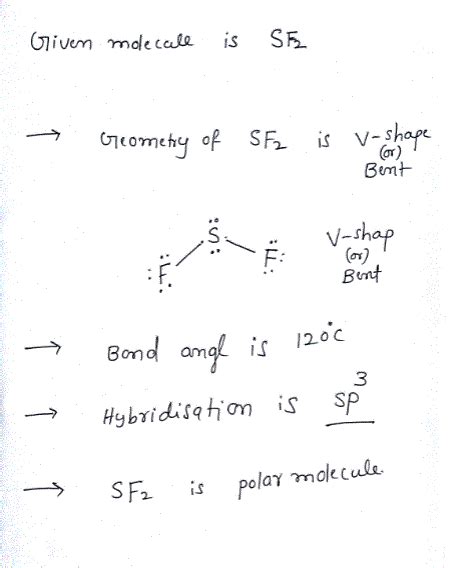 Given molecule is SF₂
→ Geometry of SF₂ is V-shape
(or)
Bent
:F̤̈ S̤̈ F̤̈: V-shap
(or)
Bent
→ Bond angl is 120°c
→ Hybridisation is sp³
→ SF₂ is polar molecule.